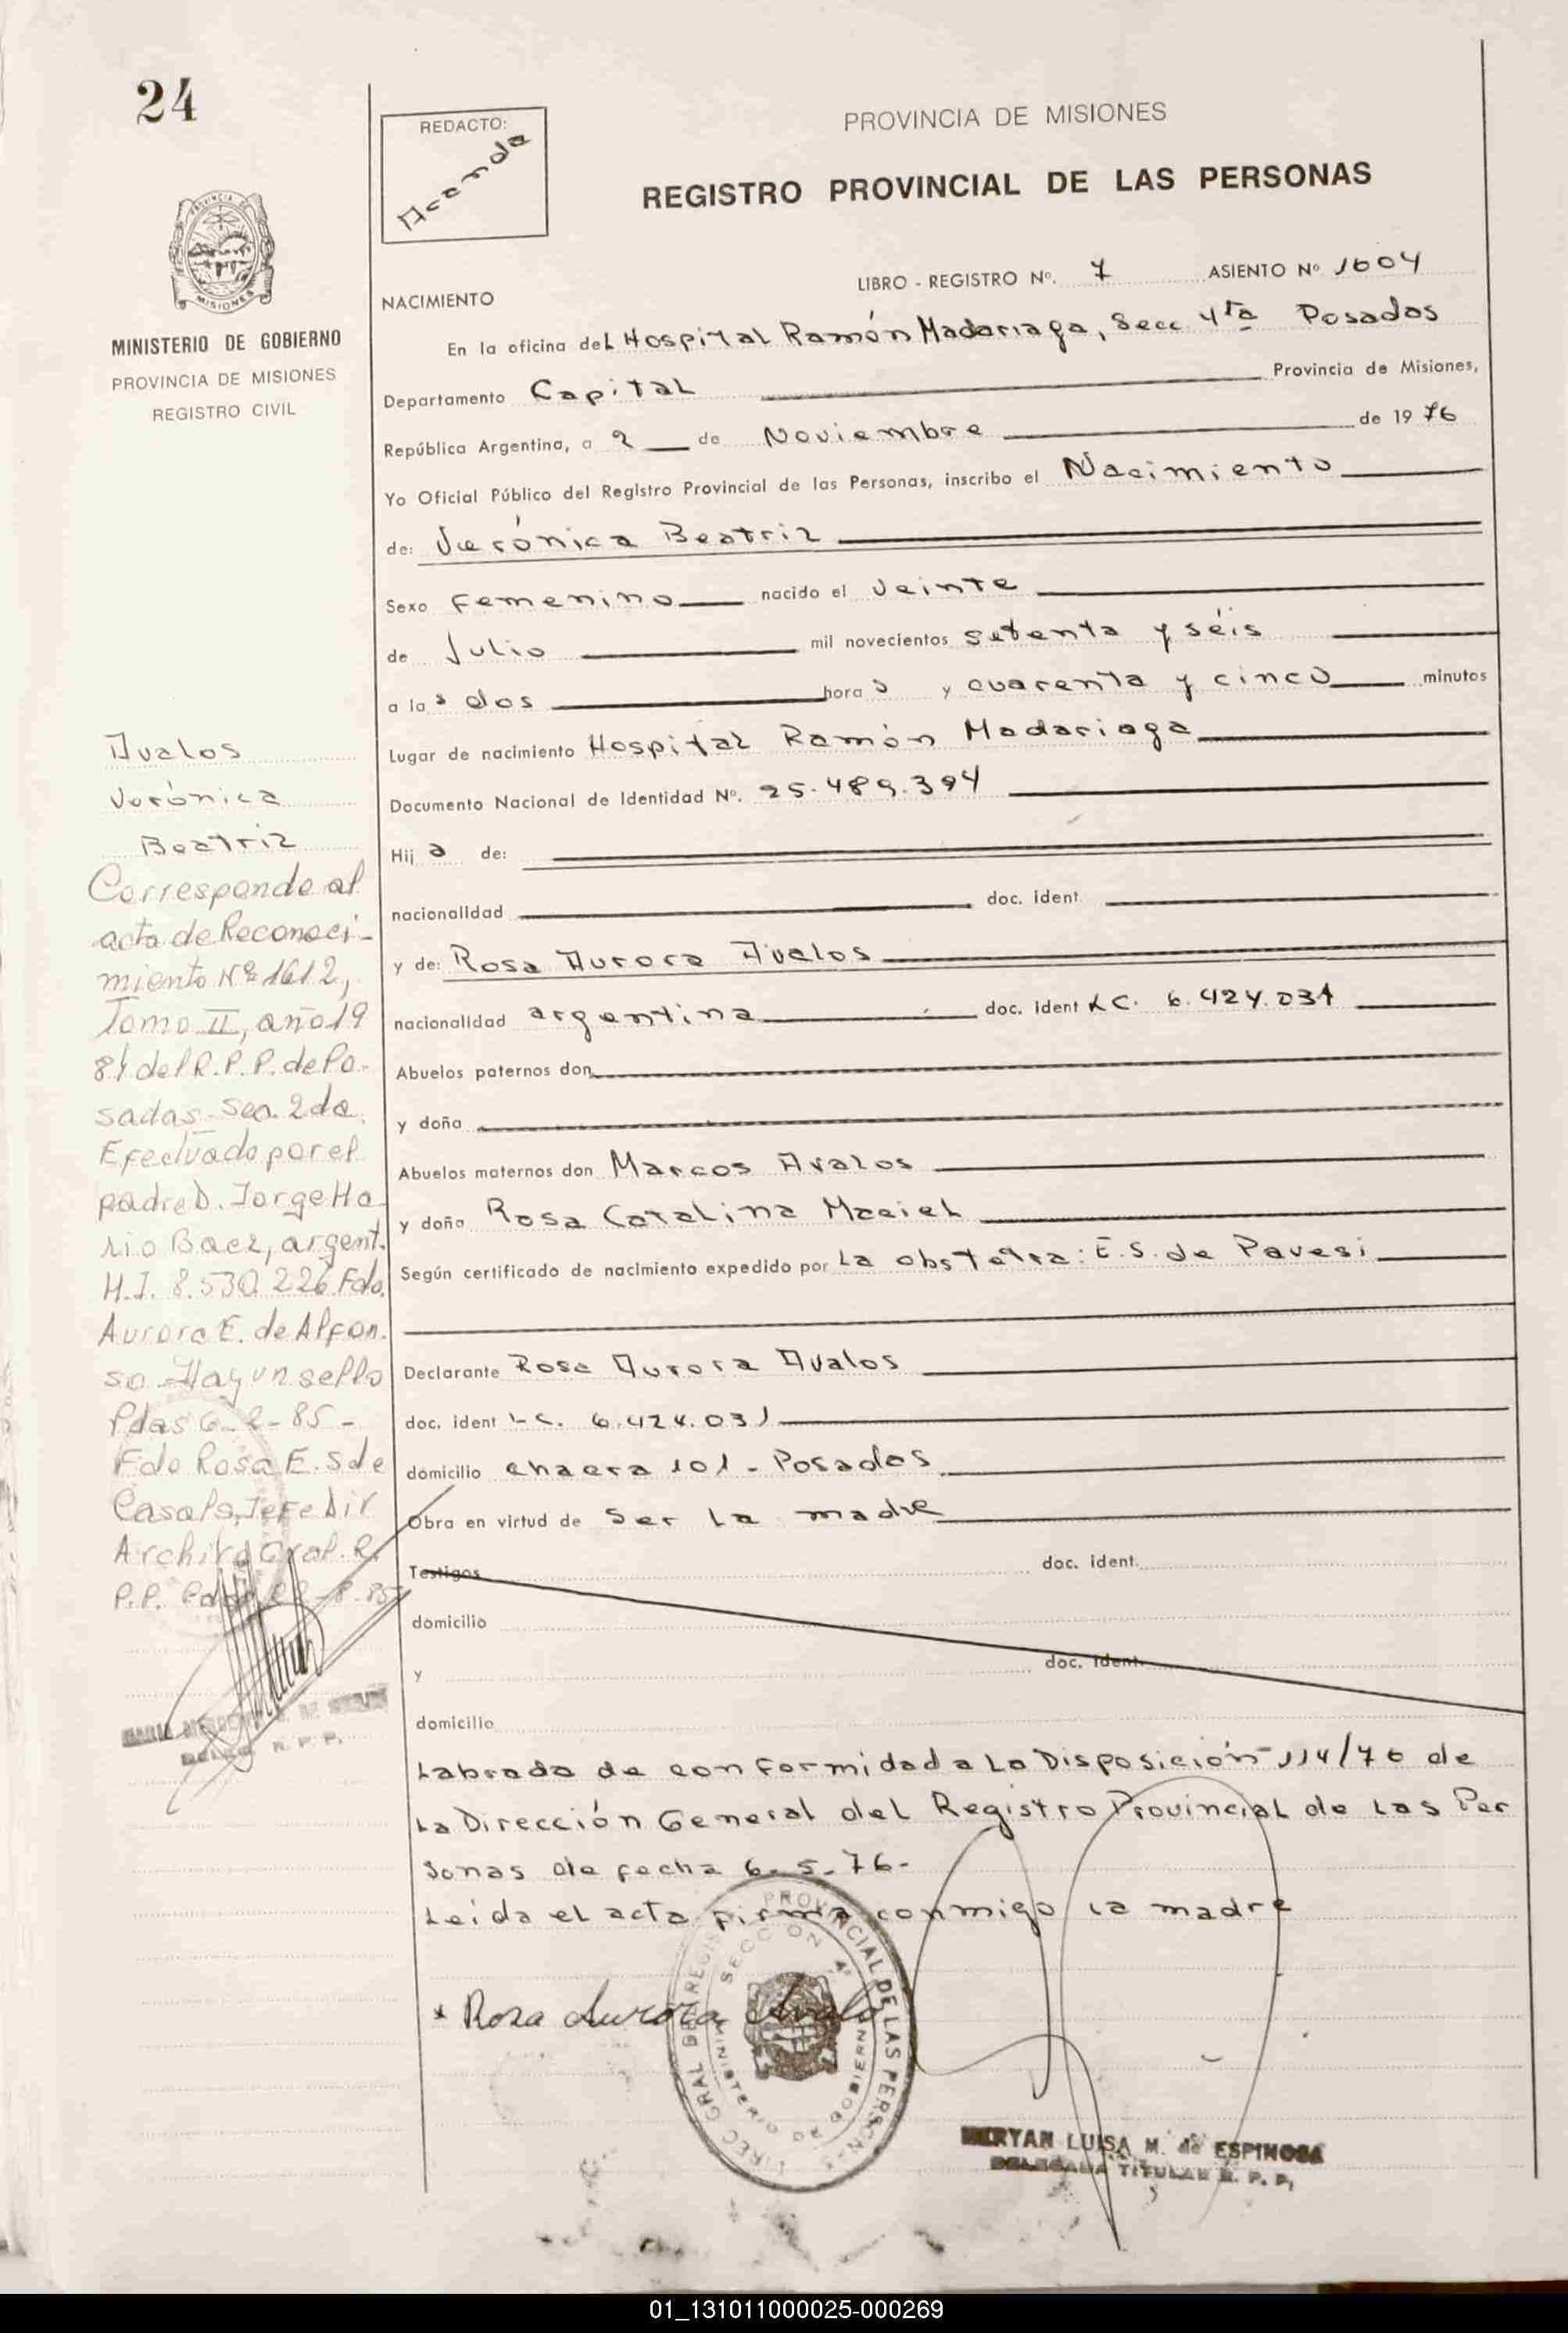 24
REDACTO:
PROVINCIA DE MISIONES
REGISTRO PROVINCIAL DE LAS PERSONAS
LIBRO - REGISTRO Nº. 7 ASIENTO Nº 1604
NACIMIENTO
MISIONES
MINISTERIO DE GOBIERNO
PROVINCIA DE MISIONES
REGISTRO CIVIL
En la oficina del Hospital Ramón Madariaga, Secc 4ta Posadas
Departamento Capital Provincia de Misiones,
República Argentina, a 2 de Noviembre de 1976
Yo Oficial Público del Registro Provincial de las Personas, inscribo el Nacimiento
de: Verónica Beatriz
Sexo Femenino nacido el veinte
de Julio mil novecientos setenta y séis
a las dos horas y cuarenta y cinco minutos
Lugar de nacimiento Hospital Ramón Madariaga
Documento Nacional de Identidad Nº. 25.489.394
Hija de:
nacionalidad doc. ident
y de: Rosa Aurora Avalos
nacionalidad argentina doc. ident LC. 6.424.031
Abuelos paternos don
y doña
Abuelos maternos don Marcos Avalos
y doña Rosa Catalina Maciel
Según certificado de nacimiento expedido por La obstetra: E.S. de Pavesi
Declarante Rosa Aurora Avalos
doc. ident L C. 6.424.031
domicilio chacra 101 - Posadas
Obra en virtud de Ser la madre
Testigos doc. ident.
domicilio
y doc. ident.
domicilio
Labrada de conformidad a La Disposición 114/76 de
La Dirección General del Registro Provincial de Las Per
sonas de fecha 6-5-76-
Leída el acta firma conmigo la madre
* Rosa Aurora Avalos
Avalos
Verónica
Beatriz
Corresponde al
acta de Reconoci-
miento Nº 1612,
Tomo II, año 19
84 del R.P.P. de Po-
sadas Sec. 2da.
Efectuado por el
padre D. Jorge Ho
rio Baez, argent.
M.I. 8.530.226 Fdo.
Aurora E. de Alfon.
so Hay un sello
Pdas 6-2-85-
Fdo Rosa E. S de
Casals, Jefe Dir
Archivo Gral. R.
P.P. Pdas
R. P. P.
PROVINCIAL DE LAS PERSONAS
SECCION 4ª
MINISTERIO DE GOBIERNO
MERYAN LUISA M. de ESPINOSA
DELEGADA TITULAR R. P. P.
01_131011000025-000269